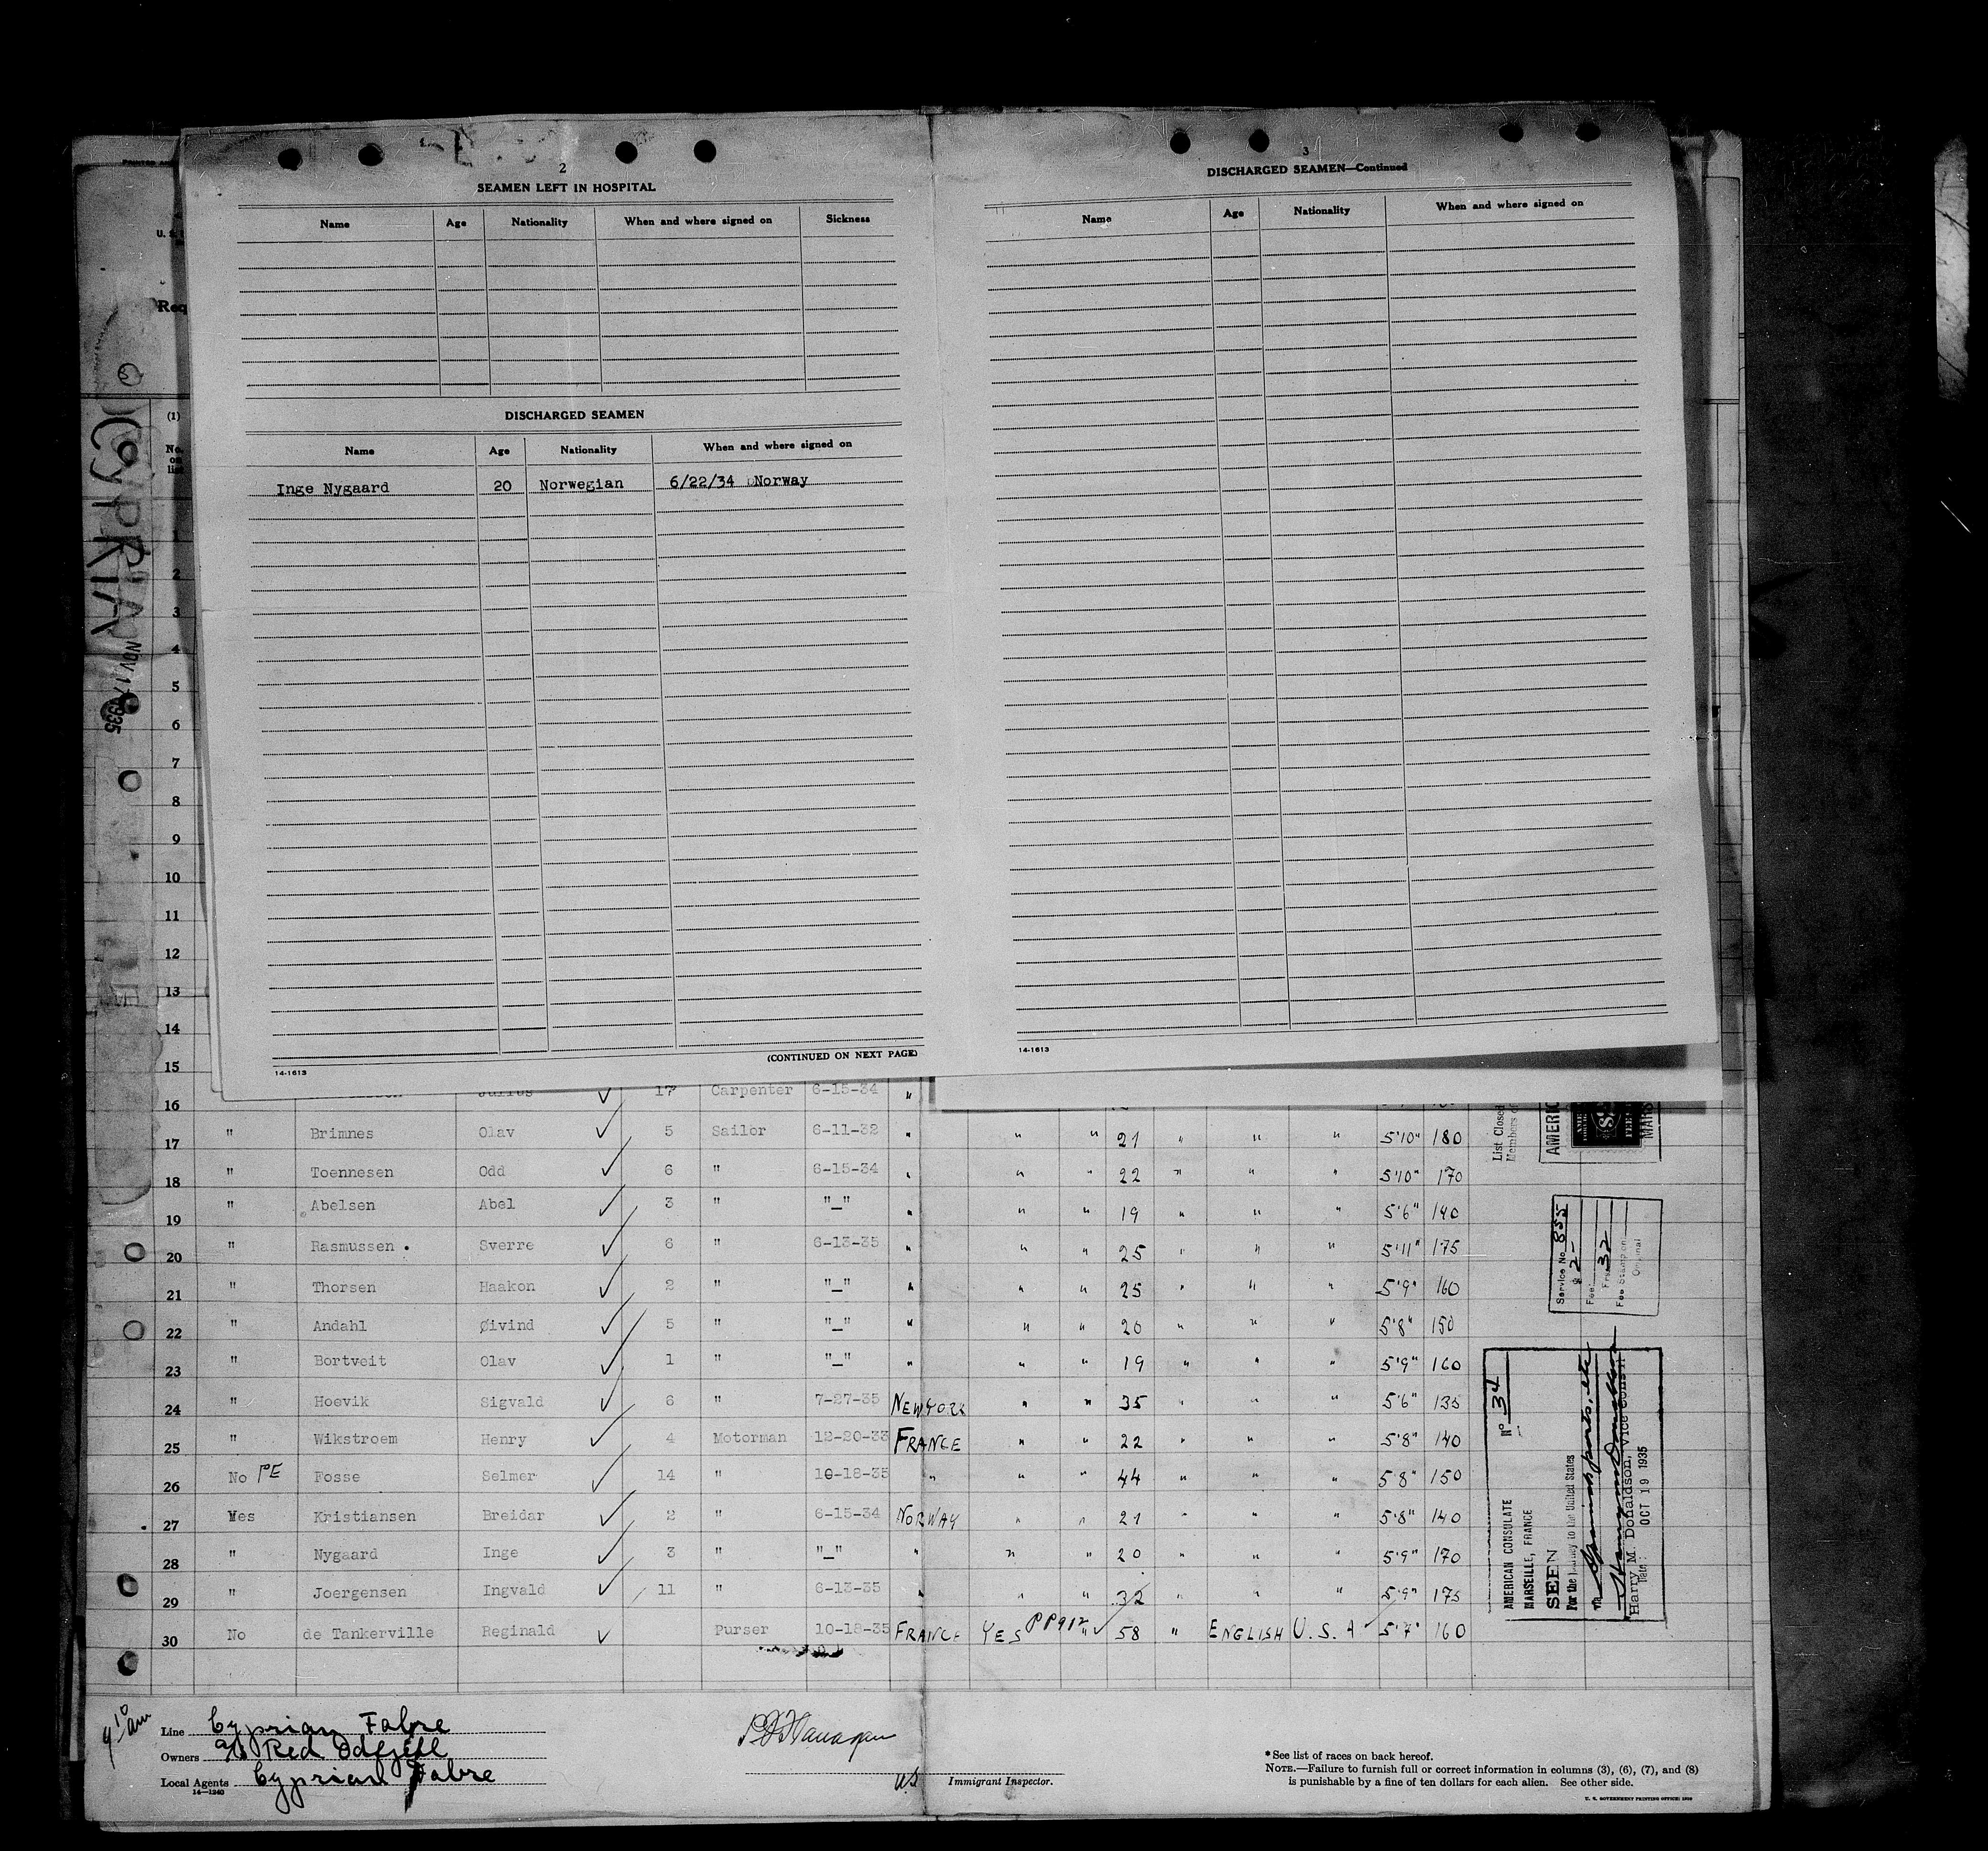 2
SEAMEN LEFT IN HOSPITAL
Name Age Nationality When and where signed on Sickness
DISCHARGED SEAMEN
Name Age Nationality When and where signed on
Inge Nygaard 20 Norwegian 6/22/34 Norway
(CONTINUED ON NEXT PAGE)
14-1613
3
DISCHARGED SEAMEN—Continued
Name Age Nationality When and where signed on
14-1613
U. S.
Req
(1)
No. on list
CYPRIA
NOV 17 1935
1
2
3
4
5
6
7
8
9
10
11
12
13
14
15
16 Julius ✓ 17 Carpenter 6-15-34 "
17 " Brimnes Olav ✓ 5 Sailor 6-11-32 " " " 21 " " " 5'10" 180
18 " Toennesen Odd ✓ 6 " 6-15-34 " " " 22 " " " 5'10" 170
19 " Abelsen Abel ✓ 3 " "_" " " " 19 " " " 5'6" 140
20 " Rasmussen . Sverre ✓ 6 " 6-13-35 " " " 25 " " " 5'11" 175
21 " Thorsen Haakon ✓ 2 " "_" " " " 25 " " " 5'9" 160
22 " Andahl Øivind ✓ 5 " "_" " " " 20 " " " 5'8" 150
23 " Bortveit Olav ✓ 1 " "_" " " " 19 " " " 5'9" 160
24 " Hoevik Sigvald ✓ 6 " 7-27-35 NEW YORK " " 35 " " 5'6" 135
25 " Wikstroem Henry ✓ 4 Motorman 12-20-33 FRANCE " " 22 " " " 5'8" 140
26 No PE Fosse Selmer ✓ 14 " 10-18-35 " " " 44 " " " 5'8" 150
27 Yes Kristiansen Breidar ✓ 2 " 6-15-34 NORWAY " " 21 " " " 5'8" 140
28 " Nygaard Inge ✓ 3 " "_" " " " 20 " " " 5'9" 170
29 " Joergensen Ingvald ✓ 11 " 6-13-35 " " " 32 " " " 5'9" 175
30 No de Tankerville Reginald ✓ Purser 10-18-35 FRANCE YES PP912 " ✓ 58 " ENGLISH U.S.A 5'7" 160
List Closed
Members of
AMERIC
MARS
Service No 855
Fee: $ 2-
Frs 32
Fee Stamp on
Original
No 34
AMERICAN CONSULATE
MARSEILLE, FRANCE
SEEN
For the journey to the United States
Spanish ports, etc
Harry M. Donaldson, Vice Consul
Date: OCT 19 1935
9 10 am
Line Cyprian Fabre
Owners A/S Red Odfjell
Local Agents Cyprian Fabre
14—1240
US Immigrant Inspector.
* See list of races on back hereof.
NOTE.—Failure to furnish full or correct information in columns (3), (6), (7), and (8)
is punishable by a fine of ten dollars for each alien. See other side.
U. S. GOVERNMENT PRINTING OFFICE: